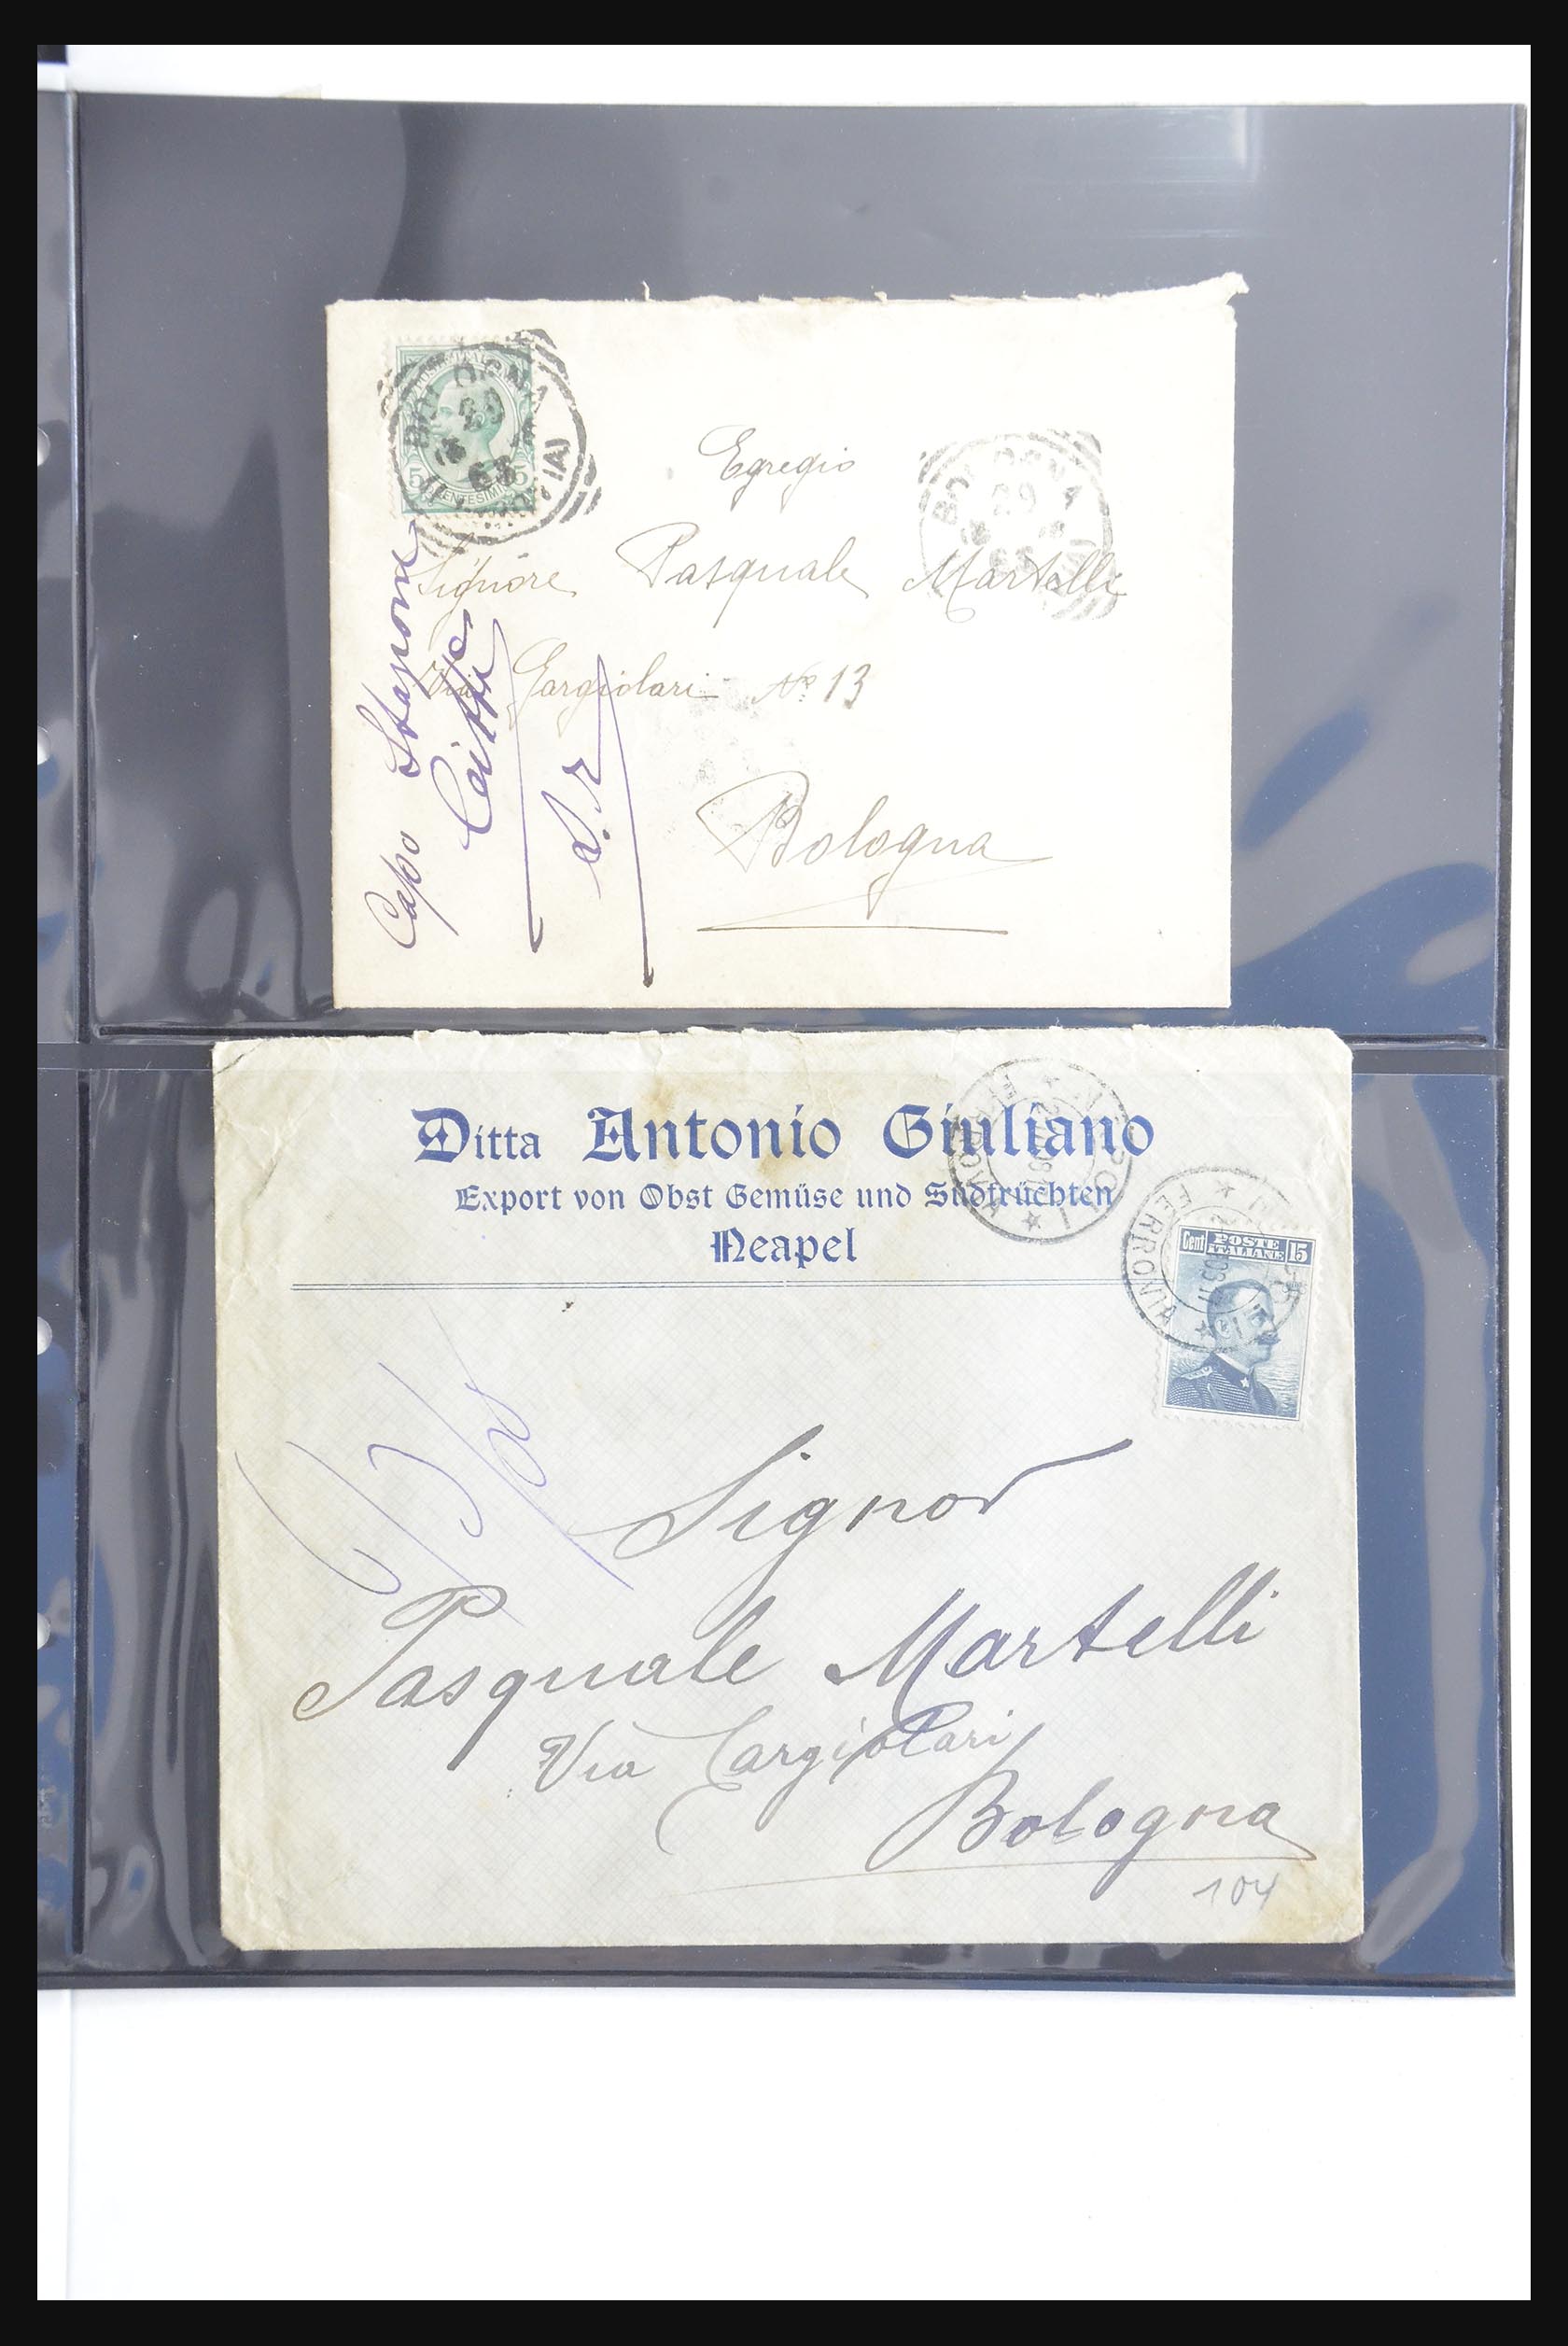 BOLOGNA
5
CENTESIMI
5
BOLOGNA
29
Egregio
Signore Pasquale Martelli
Via Gargiolari No 13
Bologna
Capo Stazione
S. r
Ditta Antonio Giuliano
Export von Obst Gemüse und Südfrüchten
Neapel
FERROVIA
NAPOLI
FERROVIA
Cent POSTE ITALIANE 15
Signor
Pasquale Martelli
Via Gargiolari
Bologna
104